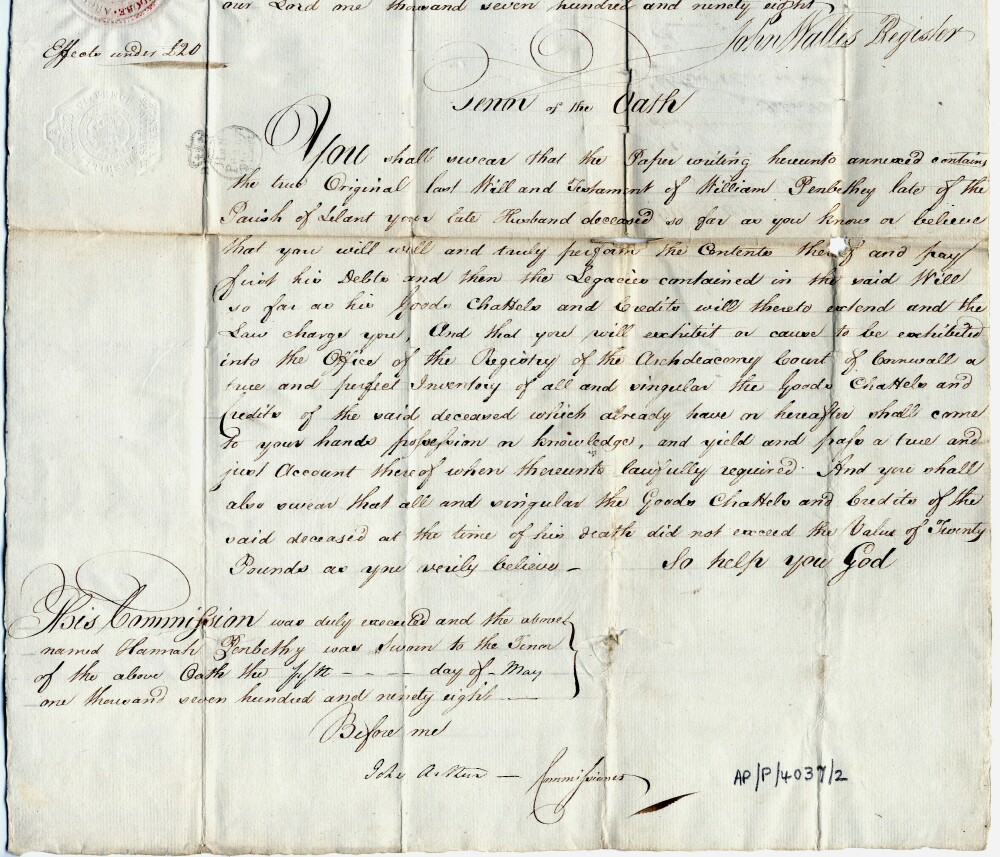 our Lord one thousand seven hundred and ninety eight
John Wallis Register
Effects under £20
Tenor of the Oath
You shall swear that the Paper writing hereunto annexed contains
the true Original last Will and Testament of William Penbethy late of the
Parish of Lelant your late Husband deceased so far as you know or believe
that you will well and truly perform the Contents thereof and pay
first his Debts and then the Legacies contained in the said Will
so far as his Goods Chattels and Credits will thereto extend and the
Law charge you, And that you will exhibit or cause to be exhibited
into the Office of the Registry of the Archdeaconry Court of Cornwall a
true and perfect Inventory of all and singular the Goods Chattels and
Credits of the said deceased which already have or hereafter shall come
to your hands possession or knowledge, and yield and pass a true and
just Account thereof when thereunto lawfully required. And you shall
also swear that all and singular the Goods Chattels and Credits of the
said deceased at the time of his death did not exceed the Value of Twenty
Pounds as you verily believe - So help you God
This Commission was duly executed and the above
named Hannah Penbethy was Sworn to the Tenor
of the above Oath the fifth - - - - day of - May
one thousand seven hundred and ninety eight
Before me
John — Commissioner
AP/P/4037/2